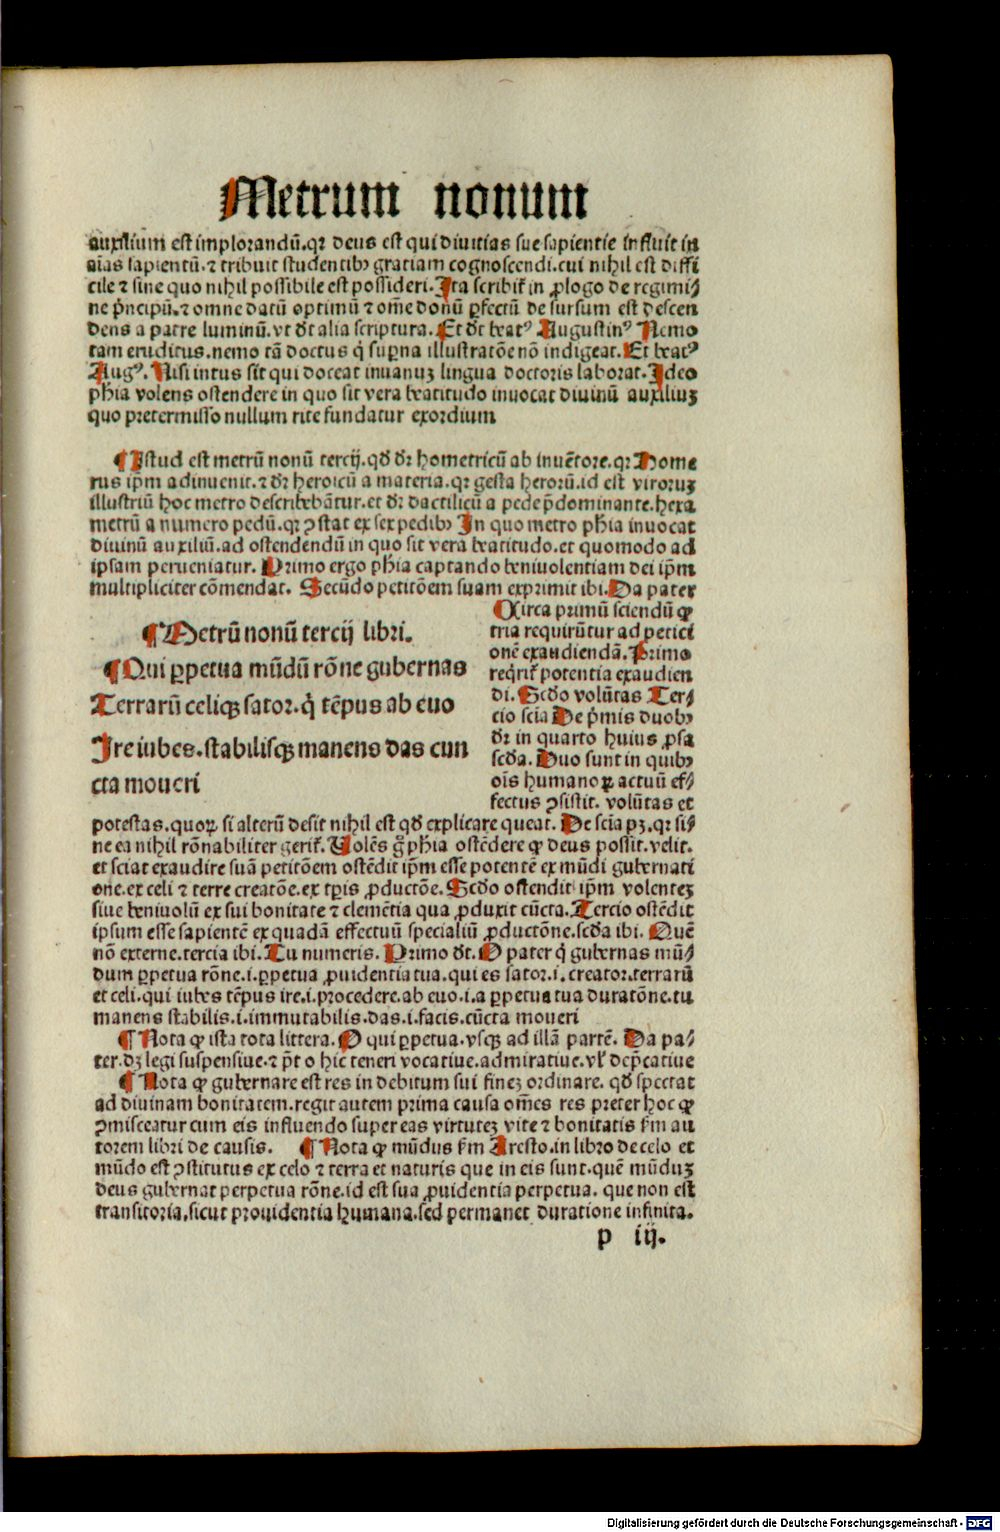 Metrum nonum
auxilium est implorandū.qꝛ deus est qui diuitias sue sapientie influit in
aīas sapientū.⁊ tribuit studentibꝫ gratiam cognoscendi.cui nihil est diffi
cile ⁊ sine quo nihil possibile est possideri.Ita scribiť in ꝓlogo de regimi⸗
ne p̄ncipū.⁊ omne datū optimū ⁊ om̄e donū ꝑfectū de sursum est descen
dens a patre luminū.vt dt̄ alia scriptura.Et dt̄ beatꝰ Augustinꝰ Nemo
tam eruditus.nemo tā doctus q̇ suꝑna illustratōe nō indigeat.Et beatꝰ
Augꝰ.Nisi intus sit qui doceat inuanuꝫ lingua doctoris laborat.Ideo
ph̄ia volens ostendere in quo sit vera beatitudo inuocat diuinū auxiliuꝫ
quo pretermisso nullum rite fundatur exordium
¶Istud est metrū nonū tercij.qd̄ dr̄ hometricū ab inuētore.qꝛ Home
rus ip̄m adinuenit.⁊ dr̄ heroicū a materia.qꝛ gesta herorū.id est viroruꝫ
illustriū hoc metro describebātur.et dr̄ dactilicū a pede p̄dominante.hexa
metrū a numero pedū.qꝛ ꝯstat ex sex pedibꝫ In quo metro ph̄ia inuocat
diuinū auxiliū.ad ostendendū in quo sit vera beatitudo.et quomodo ad
ipsam perueniatur.Primo ergo ph̄ia captando beniuolentiam dei ip̄m
multipliciter cōmendat. Secūdo petitōem suam exprimit ibi.Da pater
¶Metrū nonū tercij libri.
¶Qui ꝑpetua mūdū rōne gubernas
Terrarū celiqꝫ sator.q̇ tēpus ab euo
Ire iubes.stabilisqꝫ manens das cun
cta moueri
Circa primū sciendū ꝙ
tria requirūtur ad petici
onē exaudiendā.Primo
req̇riť potentia exaudien
di.Scd̄o volūtas Ter⸗
cio scīa De p̄mis duobꝫ
dr̄ in quarto huius ꝓsa
scd̄a.Duo sunt in quibꝫ
oīs humanoꝝ actuū ef⸗
fectus ꝯsistit. volūtas et
potestas.quoꝝ si alterū desit nihil est qd̄ explicare queat. De scīa pꝫ.qꝛ si⸗
ne ea nihil rōnabiliter geriť.Volēs g̊ ph̄ia ostēdere ꝙ deus possit.velit.
et sciat exaudire suā petitōem ostēdit ip̄m esse potentē ex mūdi gubernati
one.ex celi ⁊ terre creatōe.ex tꝑis ꝓductōe.Scd̄o ostendit ip̄m volenteꝫ
siue beniuolū ex sui bonitate ⁊ clemētia qua ꝓduxit cūcta.Tercio ostēdit
ipsum esse sapientē ex quadā effectuū specialiū ꝓductōne.scd̄a ibi. Quē
nō externe.tercia ibi.Tu numeris.Primo dt̄.O pater q̇ gubernas mū⸗
dum ꝑpetua rōne.i.ꝑpetua ꝓuidentia tua.qui es sator.i.creator.terrarū
et celi.qui iubes tēpus ire.i.procedere.ab euo.i.a ꝑpetua tua duratōne.tu
manens stabilis.i.immutabilis.das.i.facis.cūcta moueri
¶Nota ꝙ ista tota littera.O qui ꝑpetua.vsqꝫ ad illā partē. Da pa⸗
ter.dꝫ legi suspensiue.⁊ p̄t o hic teneri vocatiue.admiratiue.vl' dep̄catiue
¶Nota ꝙ gubernare est res in debitum sui fineꝫ ordinare. qd̄ spectat
ad diuinam bonitatem.regit autem prima causa om̄es res preter hoc ꝙ
ꝯmisceatur cum eis influendo super eas virtuteꝫ vite ⁊ bonitatis ẜm au
torem libri de causis. ¶Nota ꝙ mūdus ẜm Aresto.in libro de celo et
mūdo est ꝯstitutus ex celo ⁊ terra et naturis que in eis sunt.quē mūduꝫ
deus gubernat perpetua rōne.id est sua ꝓuidentia perpetua. que non est
transitoria,sicut prouidentia humana.sed permanet duratione infinita.
p iij.
Digitalisierung gefördert durch die Deutsche Forschungsgemeinschaft - DFG